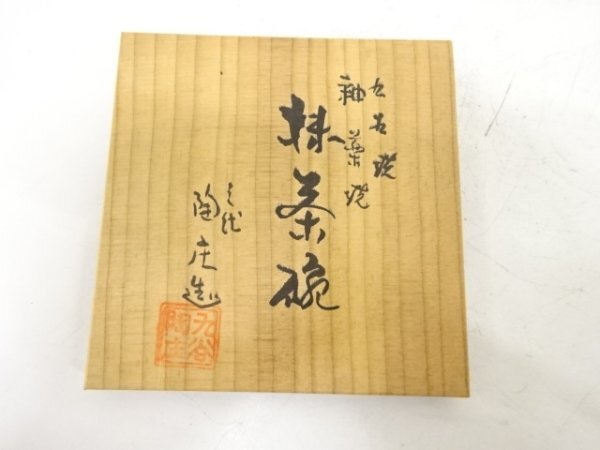 九谷焼
釉薬焼
抹茶碗
三代
陶庄造
九谷
陶庄